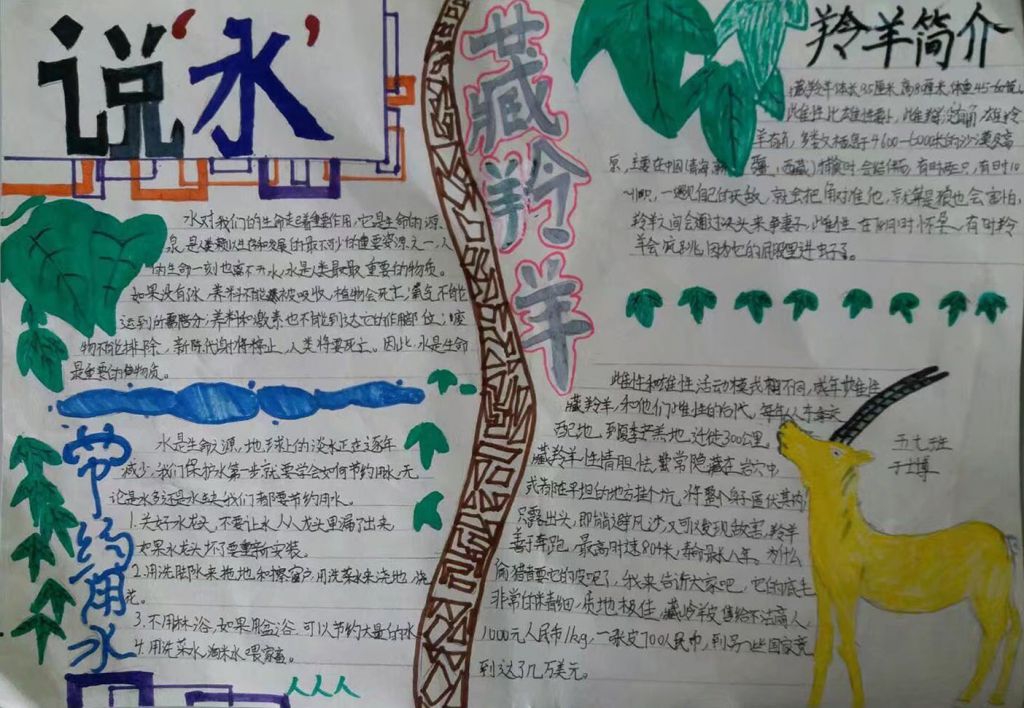 说‘水’
水对我们的生命走着重要作用,它是生命的源
泉,是人类赖以生存和发展的最不可少的重要资源之一,人
的生命一刻也离不开水,水是人类最重要的物质。
如果没有水,养料不能被吸收,植物会死亡;氧气不能
达到所需部分,养料和激素也不能到达它的作脚位;废
物不能排除,新陈代谢将停止,人类将要死亡。因此,水是生命
最重要的物质。
节约用水
水是生命源,地球上的淡水正在逐年
减少,我们保护水第一步就要学会如何节约用水,无
论是水多还是水缺,我们都要节约用水。
1.关好水龙头,不要让水从龙头里漏了出来,
如果水龙头坏了要重新安装。
2.用洗脚水来拖地和擦窗户,用洗菜水来浇地,浇
花。
3.不用林浴,如果用盆浴,可以节约大量的水
4.用洗菜水,淘米水喂家畜。
藏羚羊
羚羊
羚羊简介
藏羚羊体长
雌性比雄性
羊有角,多栖息于4600-6000米的沙漠及高
原,主要在中国(青海、新疆、西藏)
一遇见自己的天敌,就会把角对准他,就算是狼也会害怕,
羚羊之间会通过
羊会
雌性和雄性活动模式相同,成年雌性
藏羚羊,和他们雌性的后代,每年从冬季交
配地,到夏季产羔地,迁徙300公里。
藏羚羊性情胆怯,常常隐藏在岩穴中,
或者在平坦的地方挖个坑,将整个身子匿伏其内,
只露出头,即能避风沙,又可以发现敌害,羚羊
善于奔跑,最高时速80千米,寿命最长八年。为什么
偷猎者要它的皮呢?我来告诉大家吧,它的底毛
非常的精细,质地极佳,藏羚羊皮售给不法商人
1000元人民币/1kg,一张皮700人民币,到另一些国家竟
到达了几万美元。
五七班
于博